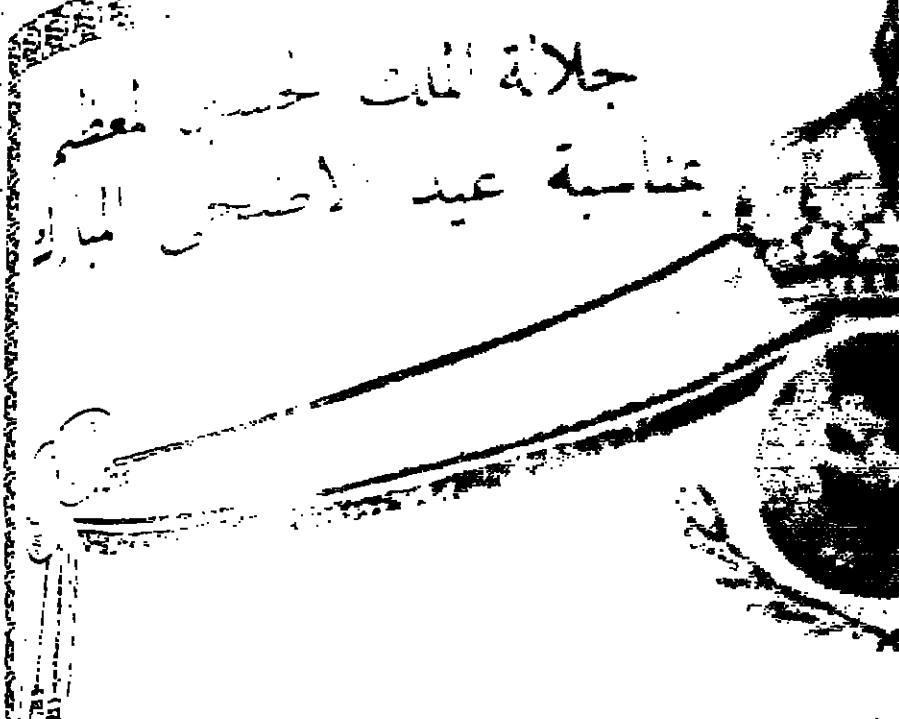 جلالة الملك حسين المعظم
بمناسبة عيد الاضحى المبارك